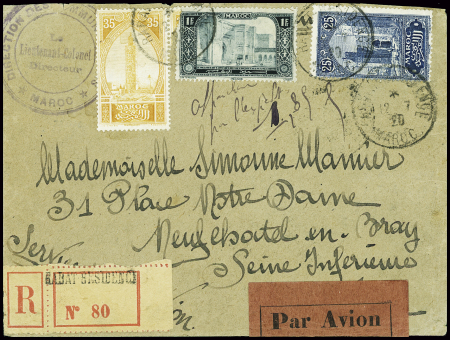 DIRECTION DES
Le
Lieutenant-Colonel
Directeur
* MAROC *
35 35
MAROC
MAROC
1F 1F
25c 25c
MAROC
MAROC
Mademoiselle Simonne Manier
31 Place Notre Dame
Neufchatel en Bray
Seine Inferieure
Service
R
RABAT RESIDENCE
N° 80
Par Avion